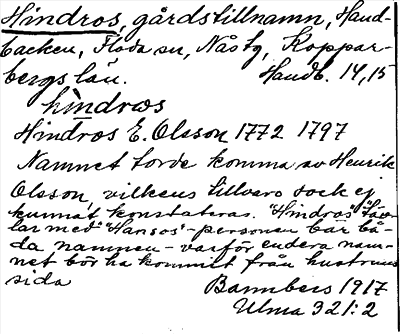 Hindros, gårdstillnamn, Hand-
backen, Floda sn, Nås tg, Koppar-
bergs län. Handb. 14,15
hìndrωs
Hindros E. Olsson 1772 1797
Namnet torde komma av Henrik
Olsson, vilkens tillvaro dock ej
kunnat konstateras. "Hindros" täv-
lar med "Hansos"-personen bär bå-
da namnen - varför endera nam-
net bör ha kommit från hustruns
sida
Bannbers 1917
Ulma 321:2